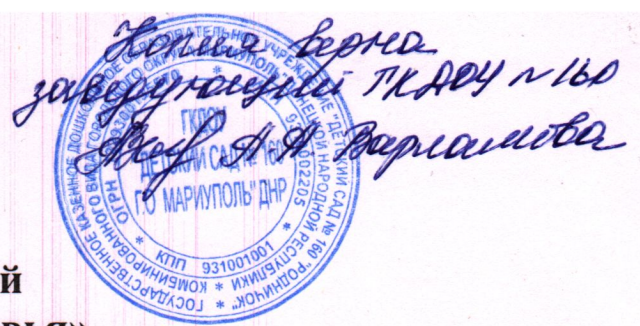 Копия верна
заведующий ГКДОУ № 160
А А Варламова
ГОСУДАРСТВЕННОЕ КАЗЕННОЕ ДОШКОЛЬНОЕ ОБРАЗОВАТЕЛЬНОЕ УЧРЕЖДЕНИЕ "ДЕТСКИЙ САД № 160 "РОДНИЧОК"
КОМБИНИРОВАННОГО ВИДА ГОРОДСКОГО ОКРУГА МАРИУПОЛЬ" ДОНЕЦКОЙ НАРОДНОЙ РЕСПУБЛИКИ
ОГРН
КПП 931001001
ГКДОУ
"ДЕТСКИЙ САД № 160
Г.О МАРИУПОЛЬ" ДНР
Й